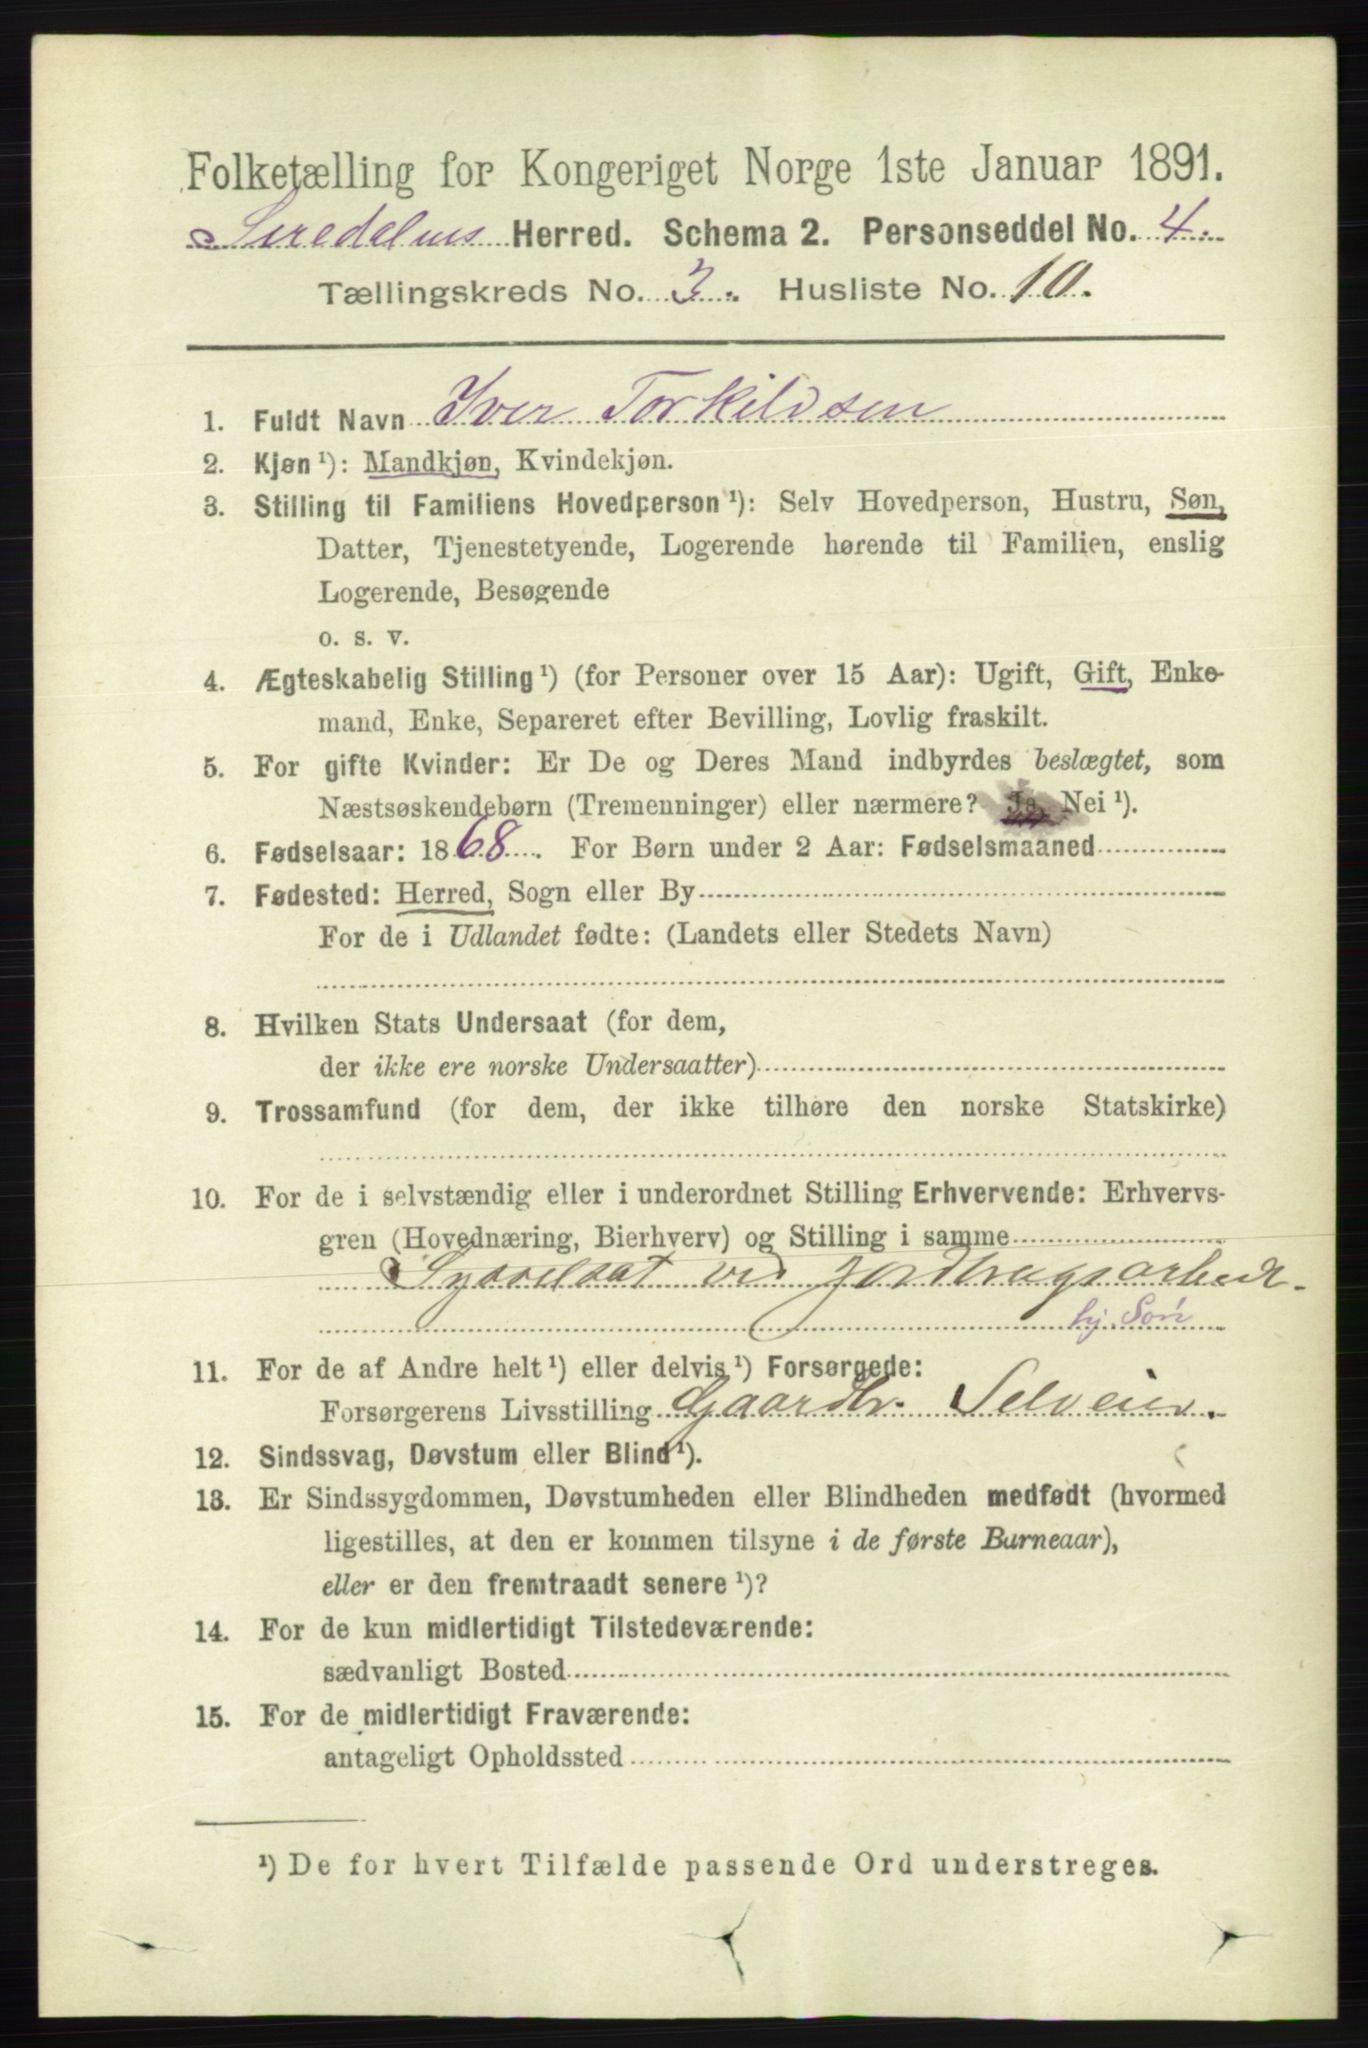 Folketælling for Kongeriget Norge 1ste Januar 1891.
Siredalens Herred. Schema 2. Personseddel No. 4.
Tællingskreds No. 3. Husliste No. 10.
1. Fuldt Navn Iver Torkildsen
2. Kjøn ¹): Mandkjøn, Kvindekjøn.
3. Stilling til Familiens Hovedperson ¹): Selv Hovedperson, Hustru, Søn,
Datter, Tjenestetyende, Logerende hørende til Familien, enslig
Logerende, Besøgende
o. s. v.
4. Ægteskabelig Stilling ¹) (for Personer over 15 Aar): Ugift, Gift, Enke-
mand, Enke, Separeret efter Bevilling, Lovlig fraskilt.
5. For gifte Kvinder: Er De og Deres Mand indbyrdes beslægtet, som
Næstsøskendebørn (Tremenninger) eller nærmere? Ja, Nei ¹).
6. Fødselsaar: 1868. For Børn under 2 Aar: Fødselsmaaned
7. Fødested: Herred, Sogn eller By
For de i Udlandet fødte: (Landets eller Stedets Navn)
8. Hvilken Stats Undersaat (for dem,
der ikke ere norske Undersaatter)
9. Trossamfund (for dem, der ikke tilhøre den norske Statskirke)
10. For de i selvstændig eller i underordnet Stilling Erhvervende: Erhvervs-
gren (Hovednæring, Bierhverv) og Stilling i samme
Sysselsat ved Jordbrugsarbeide
hj. Søn
11. For de af Andre helt ¹) eller delvis ¹) Forsørgede:
Forsørgerens Livsstilling Gaardbr. Selveier.
12. Sindssvag, Døvstum eller Blind ¹).
13. Er Sindssygdommen, Døvstumheden eller Blindheden medfødt (hvormed
ligestilles, at den er kommen tilsyne i de første Barneaar),
eller er den fremtraadt senere ¹)?
14. For de kun midlertidigt Tilstedeværende:
sædvanligt Bosted
15. For de midlertidigt Fraværende:
antageligt Opholdssted
¹) De for hvert Tilfælde passende Ord understreges.